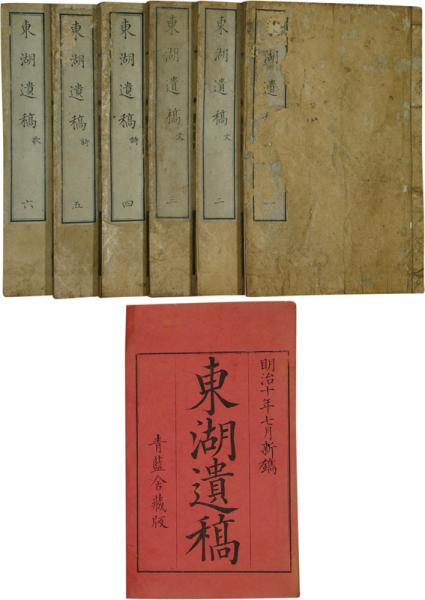 東湖遺
一
東湖遺稿 文
二
東湖遺稿 文
三
東湖遺稿 詩
四
東湖遺稿 詩
五
東湖遺稿 歌
六
明治十年七月新鐫
東湖遺稿
青藍舎蔵版